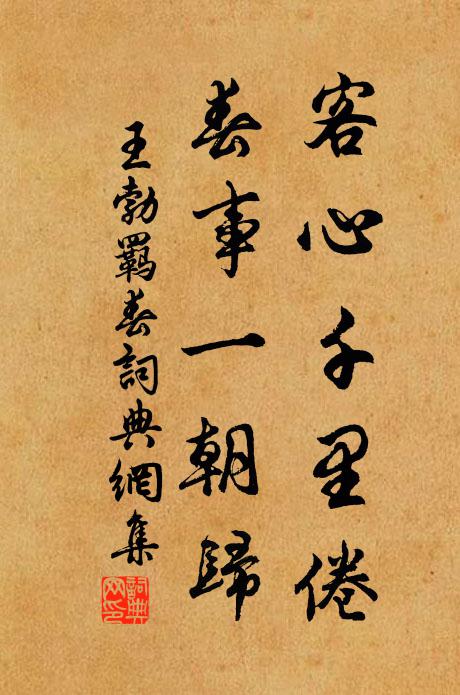 客心千里倦
春事一朝歸
王勃羈春詞典網集
詞典網印